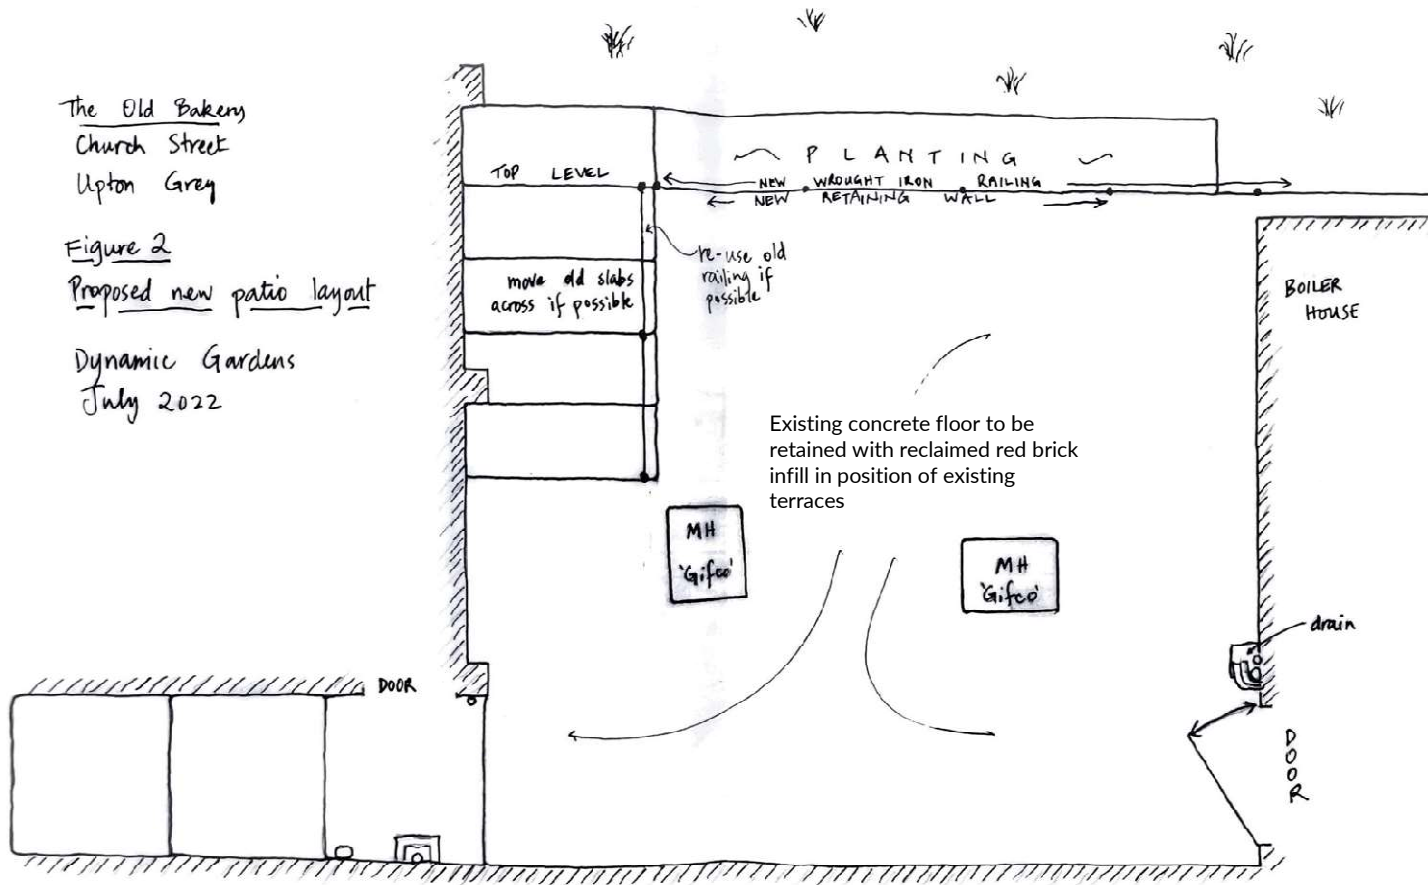 The Old Bakery
Church Street
Upton Grey
Figure 2
Proposed new patio layout
Dynamic Gardens
July 2022
PLANTING
TOP LEVEL
NEW WROUGHT IRON RAILING
NEW RETAINING WALL
re-use old
railing if
possible
move old slabs
across if possible
BOILER
HOUSE
Existing concrete floor to be
retained with reclaimed red brick
infill in position of existing
terraces
MH
'Gifco'
MH
'Gifco'
drain
DOOR
DOOR